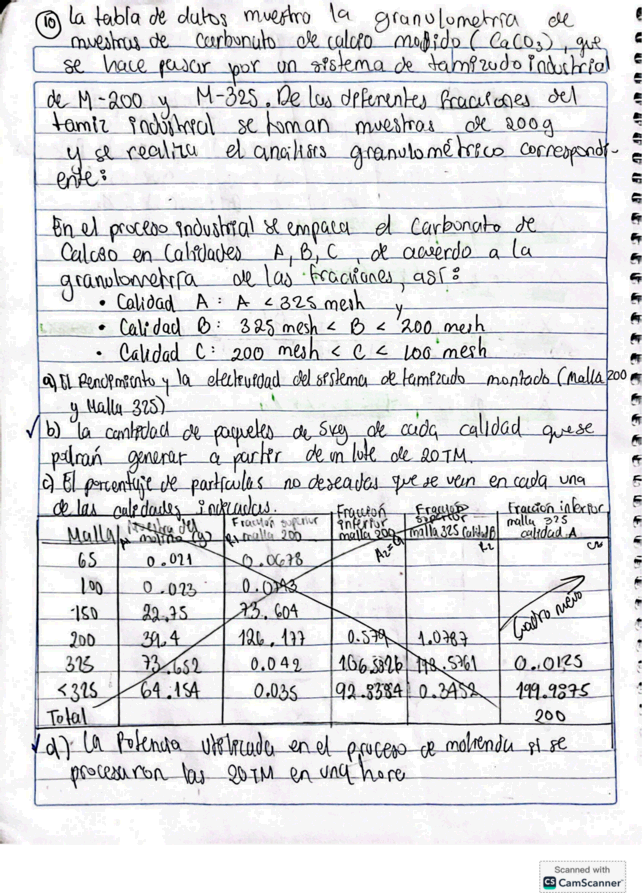 10 La tabla de datos muestra la granulometria de
muestras de carbonato de calcio molido (CaCO3), que
se hace pasar por un sistema de tamizado industrial
de M-200 y M-325. De las diferentes fracciones del
tamiz industrial se toman muestras de 200g
y se realiza el analisis granulométrico correspondi-
ente:
En el proceso industrial se empaca el Carbonato de
Calcio en Calidades A, B, C, de acuerdo a la
granulometria de las fracciones, así:
• Calidad A: A < 325 mesh y
• Calidad B: 325 mesh < B < 200 mesh
• Calidad C: 200 mesh < C < 100 mesh
a) El Rendimiento y la efectividad del sistema de tamizado montado (Malla 200
y Malla 325)
✓ b) La cantidad de paquetes de 5kg de cada calidad que se
podran generar a partir de un lote de 20 TM.
c) El porcentaje de particulas no deseadas que se ven en cada una
de las calidades indicadas.
Malla muestra del molino (g) Fracción superior malla 200 Fracción inferior malla 200 Fracción superior malla 325 Calidad B Fraccion inferior malla 325 calidad A
65 0.021 0.0678
100 0.023 0.0743
150 22.75 73.604
Cuadro nuevo
200 39.4 126.177 0.579 1.0787
325 73.652 0.042 106.5826 198.5761 0.0125
<325 64.154 0.035 92.8384 0.3452 199.9875
Total 200
✓ d) La Potencia utilizada en el proceso de molienda si se
procesaron las 20 TM en una hora
Scanned with
CS CamScanner